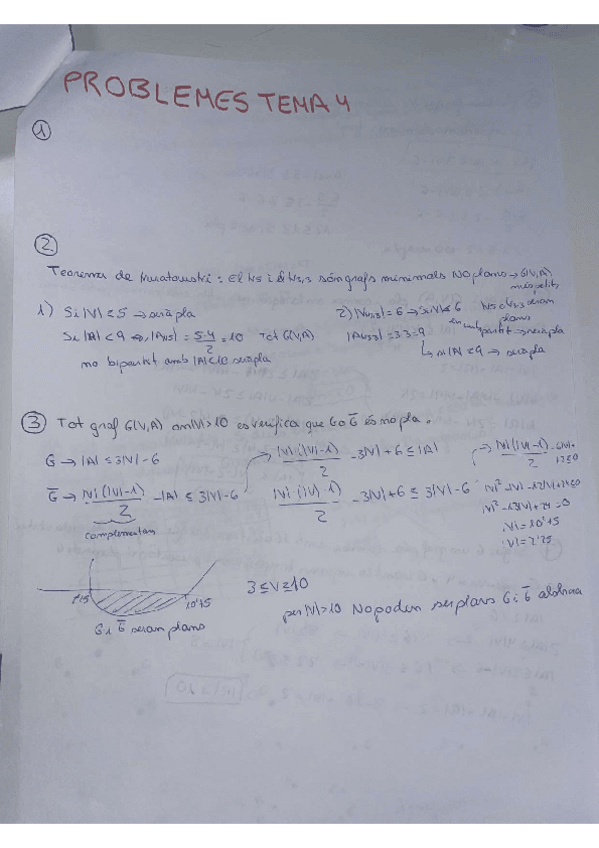 PROBLEMES TEMA 4
①
②
Teorema de Kuratowski: El K5 i K3,3 són grafs minimals NO plans → G(V,A)
més petits
1) Si |V| ≤ 5 → serà pla
2) |V3,3| = 6 → Si |V| ≤ 6
Si |A| < 9 ⇔ |A K5| = 5·4/2 = 10 Tot G(V,A)
|A K3,3| = 3·3 = 9
no bipartit amb |A| < 10 serà pla
↳ si |A| < 9 → serà pla
③ Tot graf G(V,A) amb |V| > 10 es verifica que G o G̅ és no pla.
G → |A| ≤ 3|V| - 6
G̅ → |V|(|V|-1)/2 - |A| ≤ 3|V| - 6
complementari
|V|(|V|-1)/2 - 3|V| + 6 ≤ |A|
|V|(|V|-1)/2 - 3|V| + 6 ≤ 3|V| - 6
→ |V|(|V|-1)/2 - 6|V| + 12 ≤ 0
|V|² - |V| - 12|V| + 24 ≤ 0
|V|² - 13|V| + 24 = 0
|V| = 10'75
|V| = 2'25
2'25
10'75
G i G̅ seran plans
3 ≤ V ≥ 10
per |V| > 10 No poden ser plans G i G̅ alhora